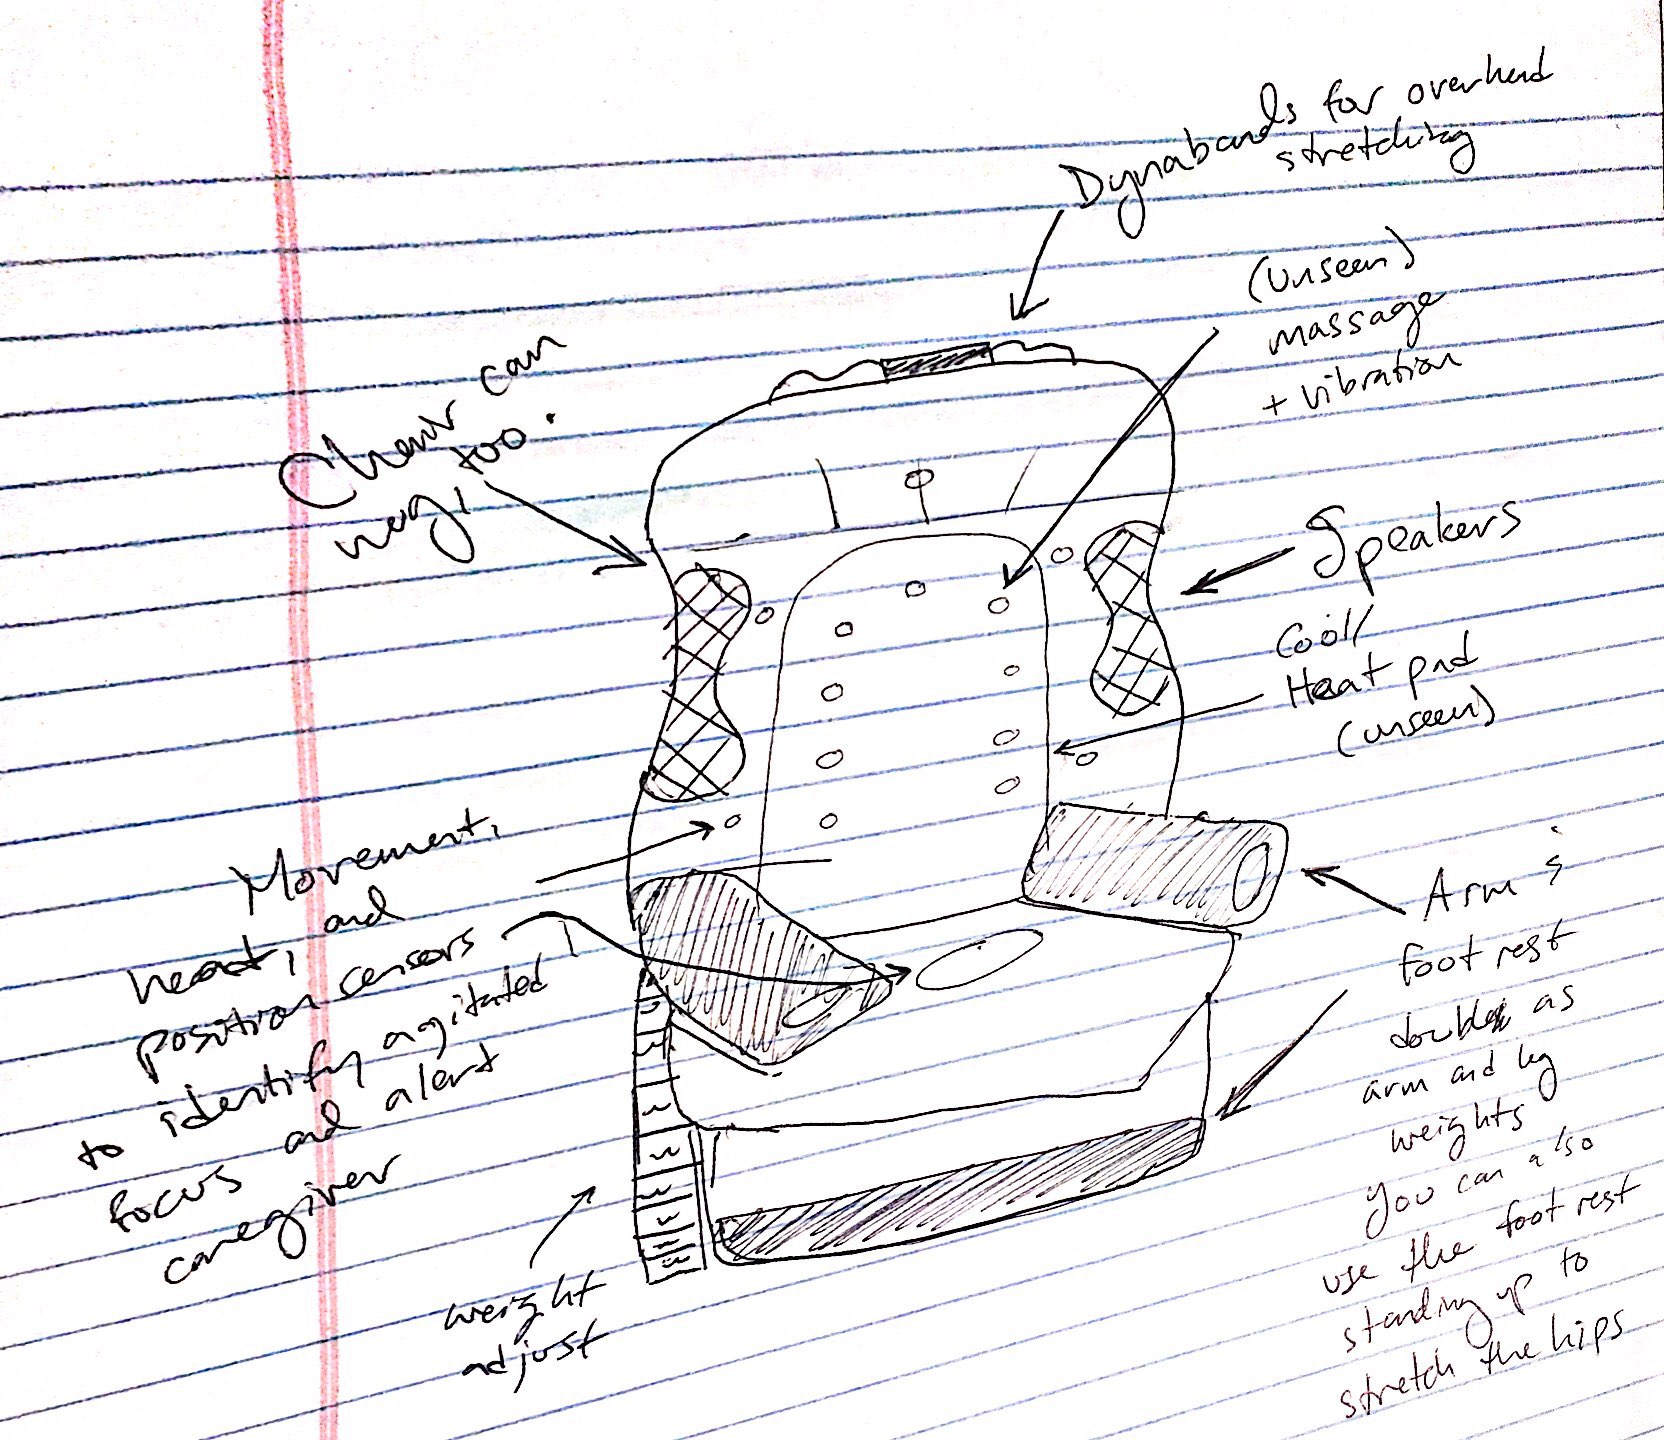 Dynabands for overhead
stretching
(unseen)
massage
+ vibration
Chair can
hug, too.
Speakers
Cool/
Heat pad
(unseen)
Movement,
heat, and
position sensors
to identify agitated
focus and alert
caregiver
Arm &
foot rest
doubles as
arm and leg
weights
You can also
use the foot rest
standing up to
stretch the hips
weight
adjust